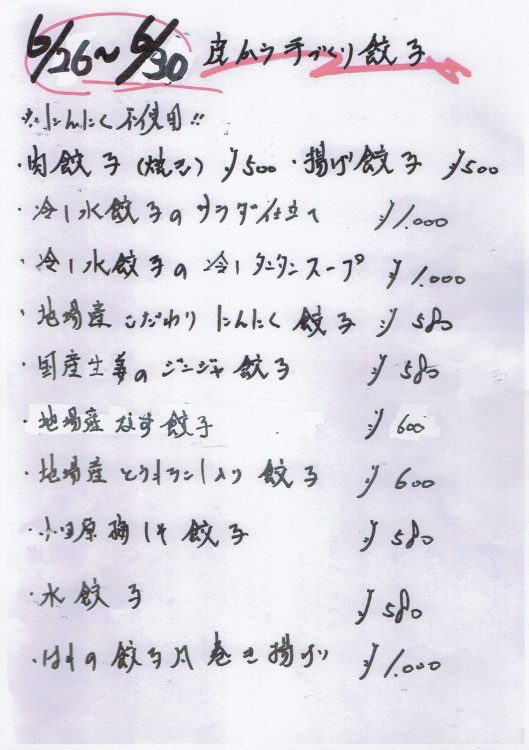 6/26〜6/30 皮から手づくり餃子
※にんにく不使用!!
・肉餃子(焼き) ¥500 ・揚げ餃子 ¥500
・冷し水餃子のサラダ仕立て ¥1.000
・冷し水餃子の冷しタンタンスープ ¥1.000
・地場産こだわりにんにく餃子 ¥580
・国産生姜のジンジャ餃子 ¥580
・地場産なす餃子 ¥600
・地場産とうもろこし入り餃子 ¥600
・小田原梅しそ餃子 ¥580
・水餃子 ¥580
・の餃子風巻き揚げ ¥1.000